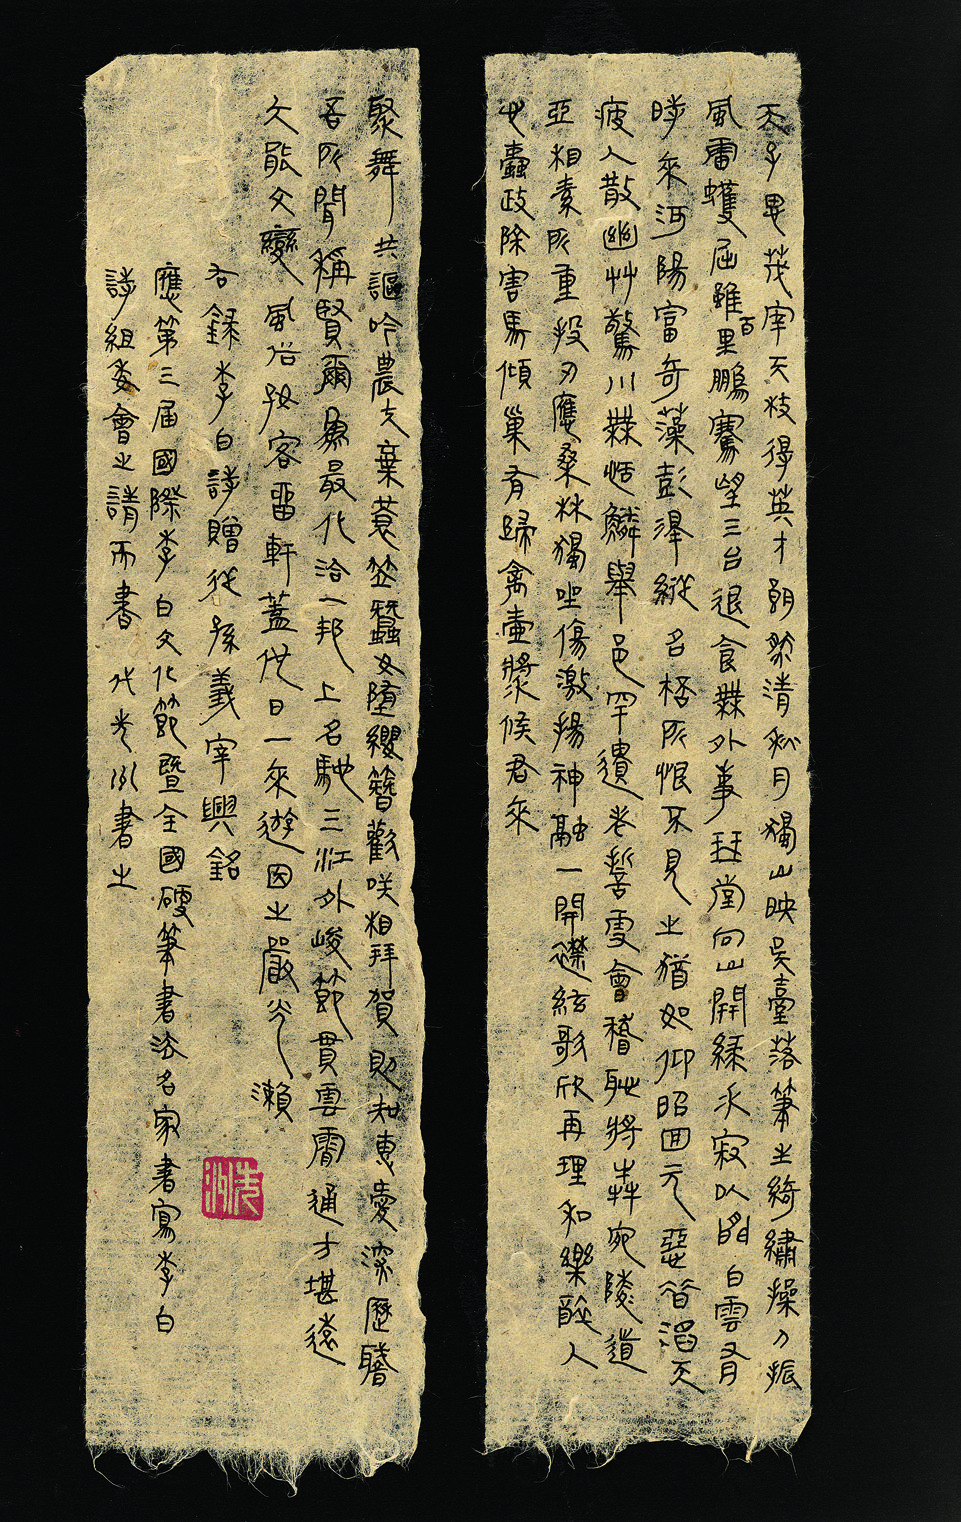 天子思茂宰天枝得英才朗然清秋月獨出映吳臺落筆生綺繡操刀振
風雷蠖屈雖百里鵬騫望三台退食無外事琴堂向山開綠水寂以閒白雲有
時來河陽富奇藻彭澤縱名桮所恨不見之猶如仰昭回元惡昔滔天
疲人散幽艸驚川無恬鱗舉邑罕遺老誓雪會稽恥將奔宛陵道
亞相素所重投刃應桑林獨坐傷激揚神融一開襟絃歌欣再理和樂醉人
心蠹政除害馬傾巢有歸禽壺漿候君來
聚舞共謳吟農夫棄蓑笠蠶女墮纓簪歡咲相拜賀則知惠愛深歷職
吾所聞稱賢爾為最化洽一邦上名馳三江外峻節貫雲霄通方堪遠
大能文變風俗好客留軒蓋他日一來遊因之嚴光瀨
右錄李白詩贈從孫義宰興銘
應第三屆國際李白文化節暨全國硬筆書法名家書寫李白
詩組委會之請而書 書之